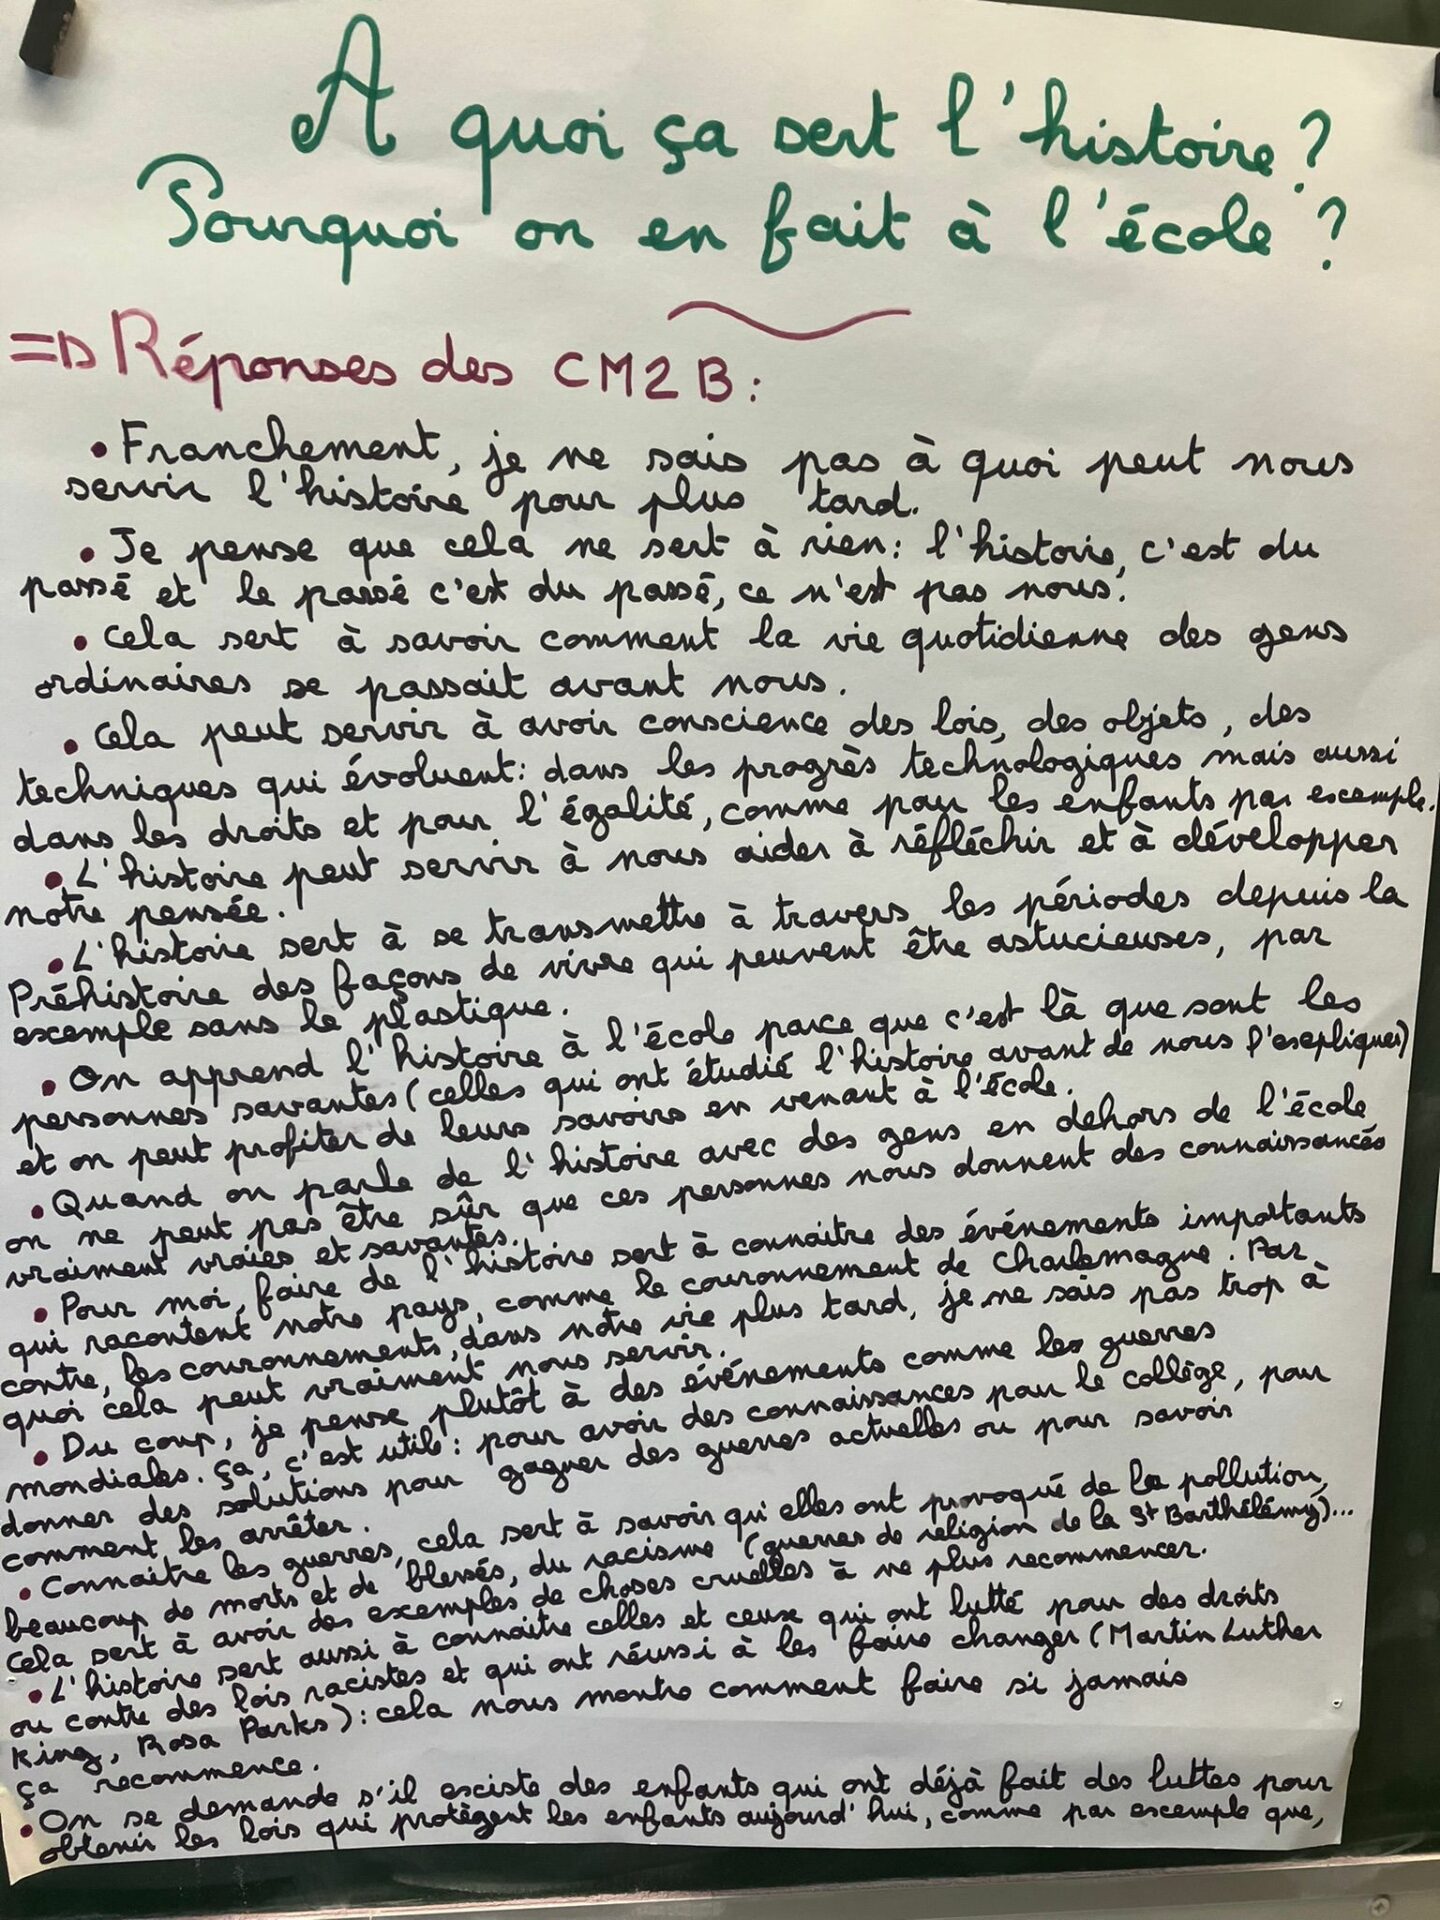 A quoi ça sert l'histoire ?
Pourquoi on en fait à l'école ?
=> Réponses des CM2 B :
• Franchement, je ne sais pas à quoi peut nous
servir l'histoire pour plus tard.
• Je pense que cela ne sert à rien : l'histoire, c'est du
passé et le passé c'est du passé, ce n'est pas nous.
• Cela sert à savoir comment la vie quotidienne des gens
ordinaires se passait avant nous.
• Cela peut servir à avoir conscience des lois, des objets, des
techniques qui évoluent : dans les progrès technologiques mais aussi
dans les droits et pour l'égalité, comme pour les enfants par exemple.
• L'histoire peut servir à nous aider à réfléchir et à développer
notre pensée.
• L'histoire sert à se transmettre à travers les périodes depuis la
Préhistoire des façons de vivre qui peuvent être astucieuses, par
exemple sans le plastique.
• On apprend l'histoire à l'école parce que c'est là que sont les
personnes savantes (celles qui ont étudié l'histoire avant de nous l'expliquer)
et on peut profiter de leurs savoirs en venant à l'école.
• Quand on parle de l'histoire avec des gens en dehors de l'école
on ne peut pas être sûr que ces personnes nous donnent des connaissances
vraiment vraies et savantes.
• Pour moi, faire de l'histoire sert à connaitre des événements importants
qui racontent notre pays, comme le couronnement de Charlemagne. Par
contre, les couronnements, dans notre vie plus tard, je ne sais pas trop à
quoi cela peut vraiment nous servir.
• Du coup, je pense plutôt à des événements comme les guerres
mondiales. Ça, c'est utile : pour avoir des connaissances pour le collège, pour
donner des solutions pour gagner des guerres actuelles ou pour savoir
comment les arrêter.
• Connaitre les guerres, cela sert à savoir qu'elles ont provoqué de la pollution,
beaucoup de morts et de blessés, du racisme (guerres de religion de la St Barthélémy)...
Cela sert à avoir des exemples de choses cruelles à ne plus recommencer.
• L'histoire sert aussi à connaitre celles et ceux qui ont lutté pour des droits
ou contre des lois racistes et qui ont réussi à les faire changer (Martin Luther
King, Rosa Parks) : cela nous montre comment faire si jamais
ça recommence.
• On se demande s'il existe des enfants qui ont déjà fait des luttes pour
obtenir les lois qui protègent les enfants aujourd'hui, comme par exemple que,